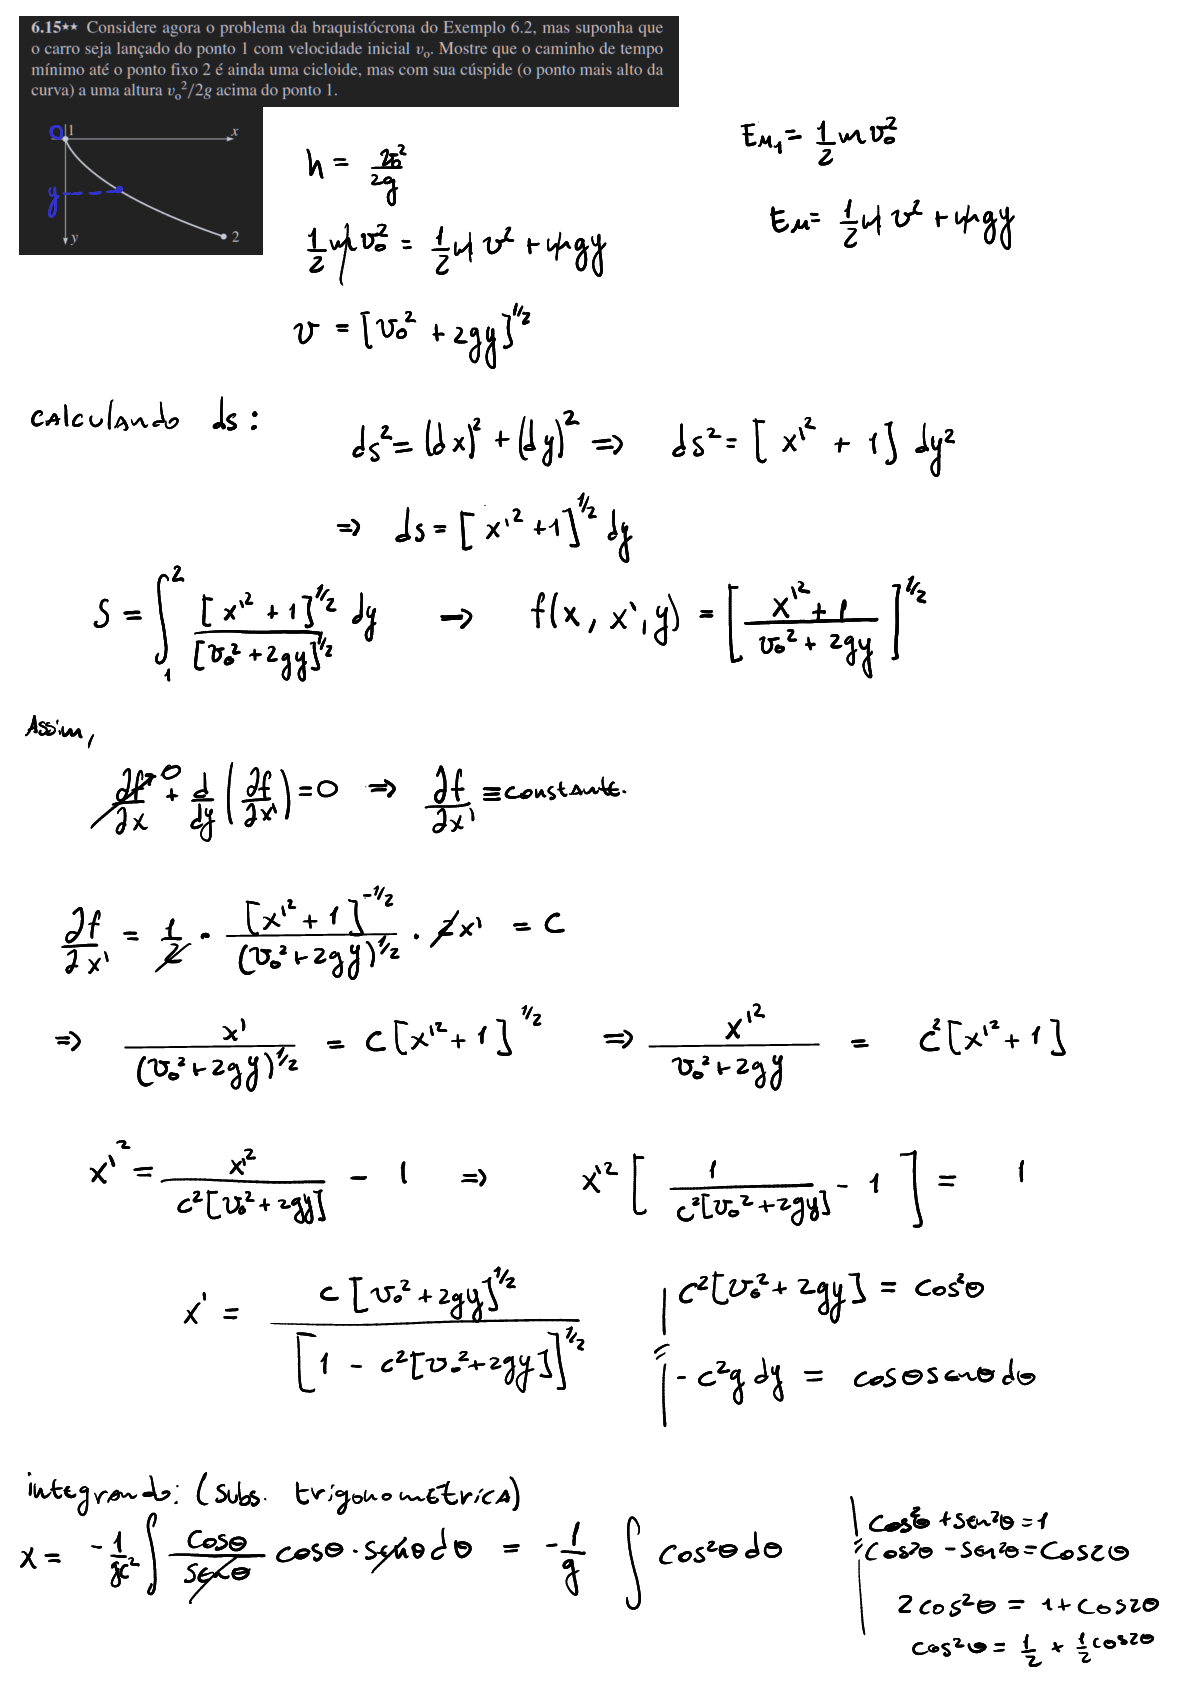 6.15** Considere agora o problema da braquistócrona do Exemplo 6.2, mas suponha que
o carro seja lançado do ponto 1 com velocidade inicial v₀. Mostre que o caminho de tempo
mínimo até o ponto fixo 2 é ainda uma cicloide, mas com sua cúspide (o ponto mais alto da
curva) a uma altura v₀²/2g acima do ponto 1.
O 1 x
y
y 2
h = v₀²/2g
E_M₁ = 1/2 m v₀²
1/2 m v₀² = 1/2 m v² + mgy
E_M = 1/2 m v² + mgy
v = [v₀² + 2gy]^1/2
calculando ds:
ds² = (dx)² + (dy)² => ds² = [x'² + 1] dy²
=> ds = [x'² + 1]^1/2 dy
S = ∫₁² [x'² + 1]^1/2 / [v₀² + 2gy]^1/2 dy → f(x, x', y) = [(x'² + 1)/(v₀² + 2gy)]^1/2
Assim,
∂f/∂x →0 + d/dy (∂f/∂x') = 0 => ∂f/∂x' ≡ constante.
∂f/∂x' = 1/2 · [x'² + 1]^-1/2 / (v₀² + 2gy)^1/2 · 2x' = c
=> x'/(v₀² + 2gy)^1/2 = c[x'² + 1]^1/2 => x'²/(v₀² + 2gy) = c²[x'² + 1]
x'² = x'²/(c²[v₀² + 2gy]) - 1 => x'² [1/(c²[v₀² + 2gy]) - 1] = 1
x' = c[v₀² + 2gy]^1/2 / [1 - c²[v₀² + 2gy]]^1/2
c²[v₀² + 2gy] = cos²θ
- c²g dy = cosθ senθ dθ
integrando: (subs. trigonométrica)
x = -1/gc² ∫ cosθ/senθ cosθ · senθ dθ = -1/g ∫ cos²θ dθ
cos²θ + sen²θ = 1
cos²θ - sen²θ = cos2θ
2cos²θ = 1 + cos2θ
cos²θ = 1/2 + 1/2 cos2θ